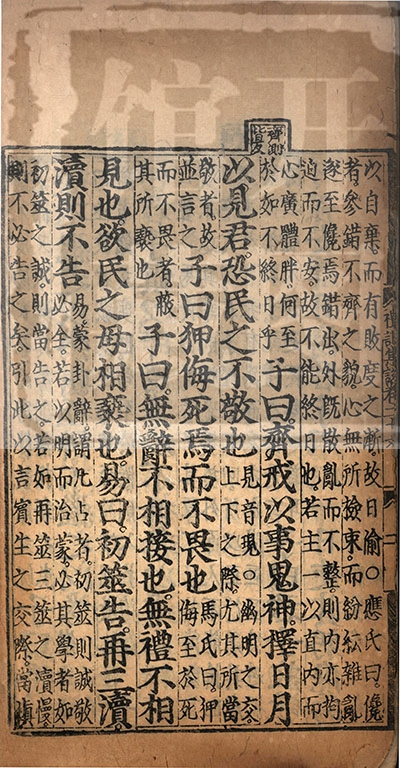 以自棄而有敗度之漸故日偷○應氏曰儳
者參錯不齊之貌心無所檢束而紛紜雜亂
遂至儳焉錯出外既散亂而不整則內亦拘
迫而不安故不能終日也若主一以直內而
心廣體胖何至
於如不終日乎
子曰齊戒以事鬼神擇日月
以見君恐民之不敬也
見音現○幽明之交
上下之際尤其所當
敬者故
並言之
子曰狎侮死焉而不畏也
馬氏曰狎
侮至於死
而不畏者蔽
其所褻也
子曰無辭不相接也無禮不相
見也欲民之毋相褻也易曰初筮告再三瀆
瀆則不告
易蒙卦辭謂凡占者初筮則誠敬
必全若以明而治蒙必其學者如
初筮之誠則當告之若如再筮三筮之瀆慢
則不必告之矣引此以言賓主之交際當慎